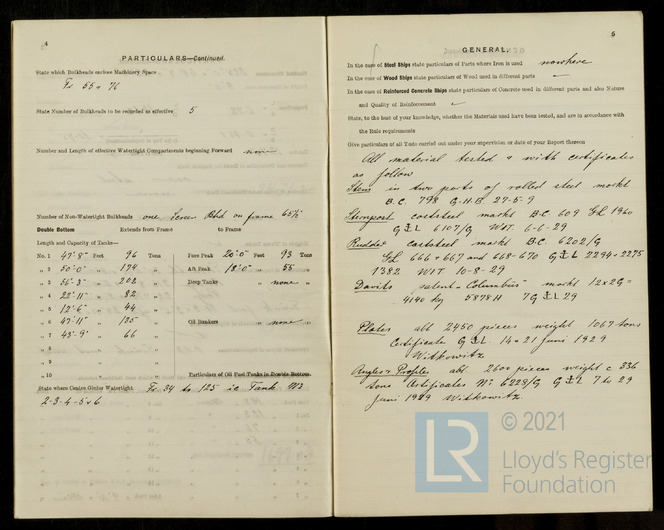 4
PARTICULARS—Continued.
State which Bulkheads enclose Machinery Space
Fr 55 & 76
State Number of Bulkheads to be recorded as effective 5
Number and Length of effective Watertight Compartments beginning Forward none
Number of Non-Watertight Bulkheads one on frame 65½
Double Bottom Extends from Frame to Frame
Length and Capacity of Tanks—
No. 1 47'-8" Feet 96 Tons Fore Peak 20'-0" Feet 93 Tons
„ 2 50'-0" „ 174 „ Aft Peak 18'-0" „ 55 „
„ 3 56'-3" „ 202 „ Deep Tanks „ none „
„ 4 22'-11" „ 82 „
„ 5 12'-6" „ 44 „
„ 6 47'-11" „ 125 „ Oil Bunkers „ none „
„ 7 43'-9" „ 66 „
„ 8 „ „
„ 9 „ „
„ 10 „ „ Particulars of Oil Fuel Tanks in Double Bottom.
State where Centre Girder Watertight. Fr. 34 to 125 ie Tank No
2-3-4-5 & 6
5
GENERAL.
In the case of Steel Ships state particulars of Parts where Iron is used nowhere
In the case of Wood Ships state particulars of Wood used in different parts —
In the case of Reinforced Concrete Ships state particulars of Concrete used in different parts and also Nature
and Quality of Reinforcement
State, to the best of your knowledge, whether the Materials used have been tested, and are in accordance with
the Rule requirements
Give particulars of all Tanks carried out under your supervision or date of your Report thereon
All material tested & with certificates
as follow
Stem in two parts of rolled steel markt
B.C. 798 G.H.B. 27-5-9
Sternpost caststeel markt B.C. 609 GL 1960
G&L 6107/G WIT. 6-6-29
Rudder caststeel markt B.C. 6202/G
GL 666 & 667 and 668-670 G&L 2294-2295
1382 WIT 10-8-29
Davits patent "Columbus" markt 12x2G=
4140 kg 5878H 7G&L29
Plates abt 2450 pieces weight 1067 tons
Certificates G&L. 14 & 21 Juni 1929
Witkowitz
Angles & Profiles abt. 2600 pieces weight c 336
tons Certificates No 6228/G G&L 7 to 29
Juni 1929 Witkowitz.
© 2021
LR
Lloyd's Register
Foundation